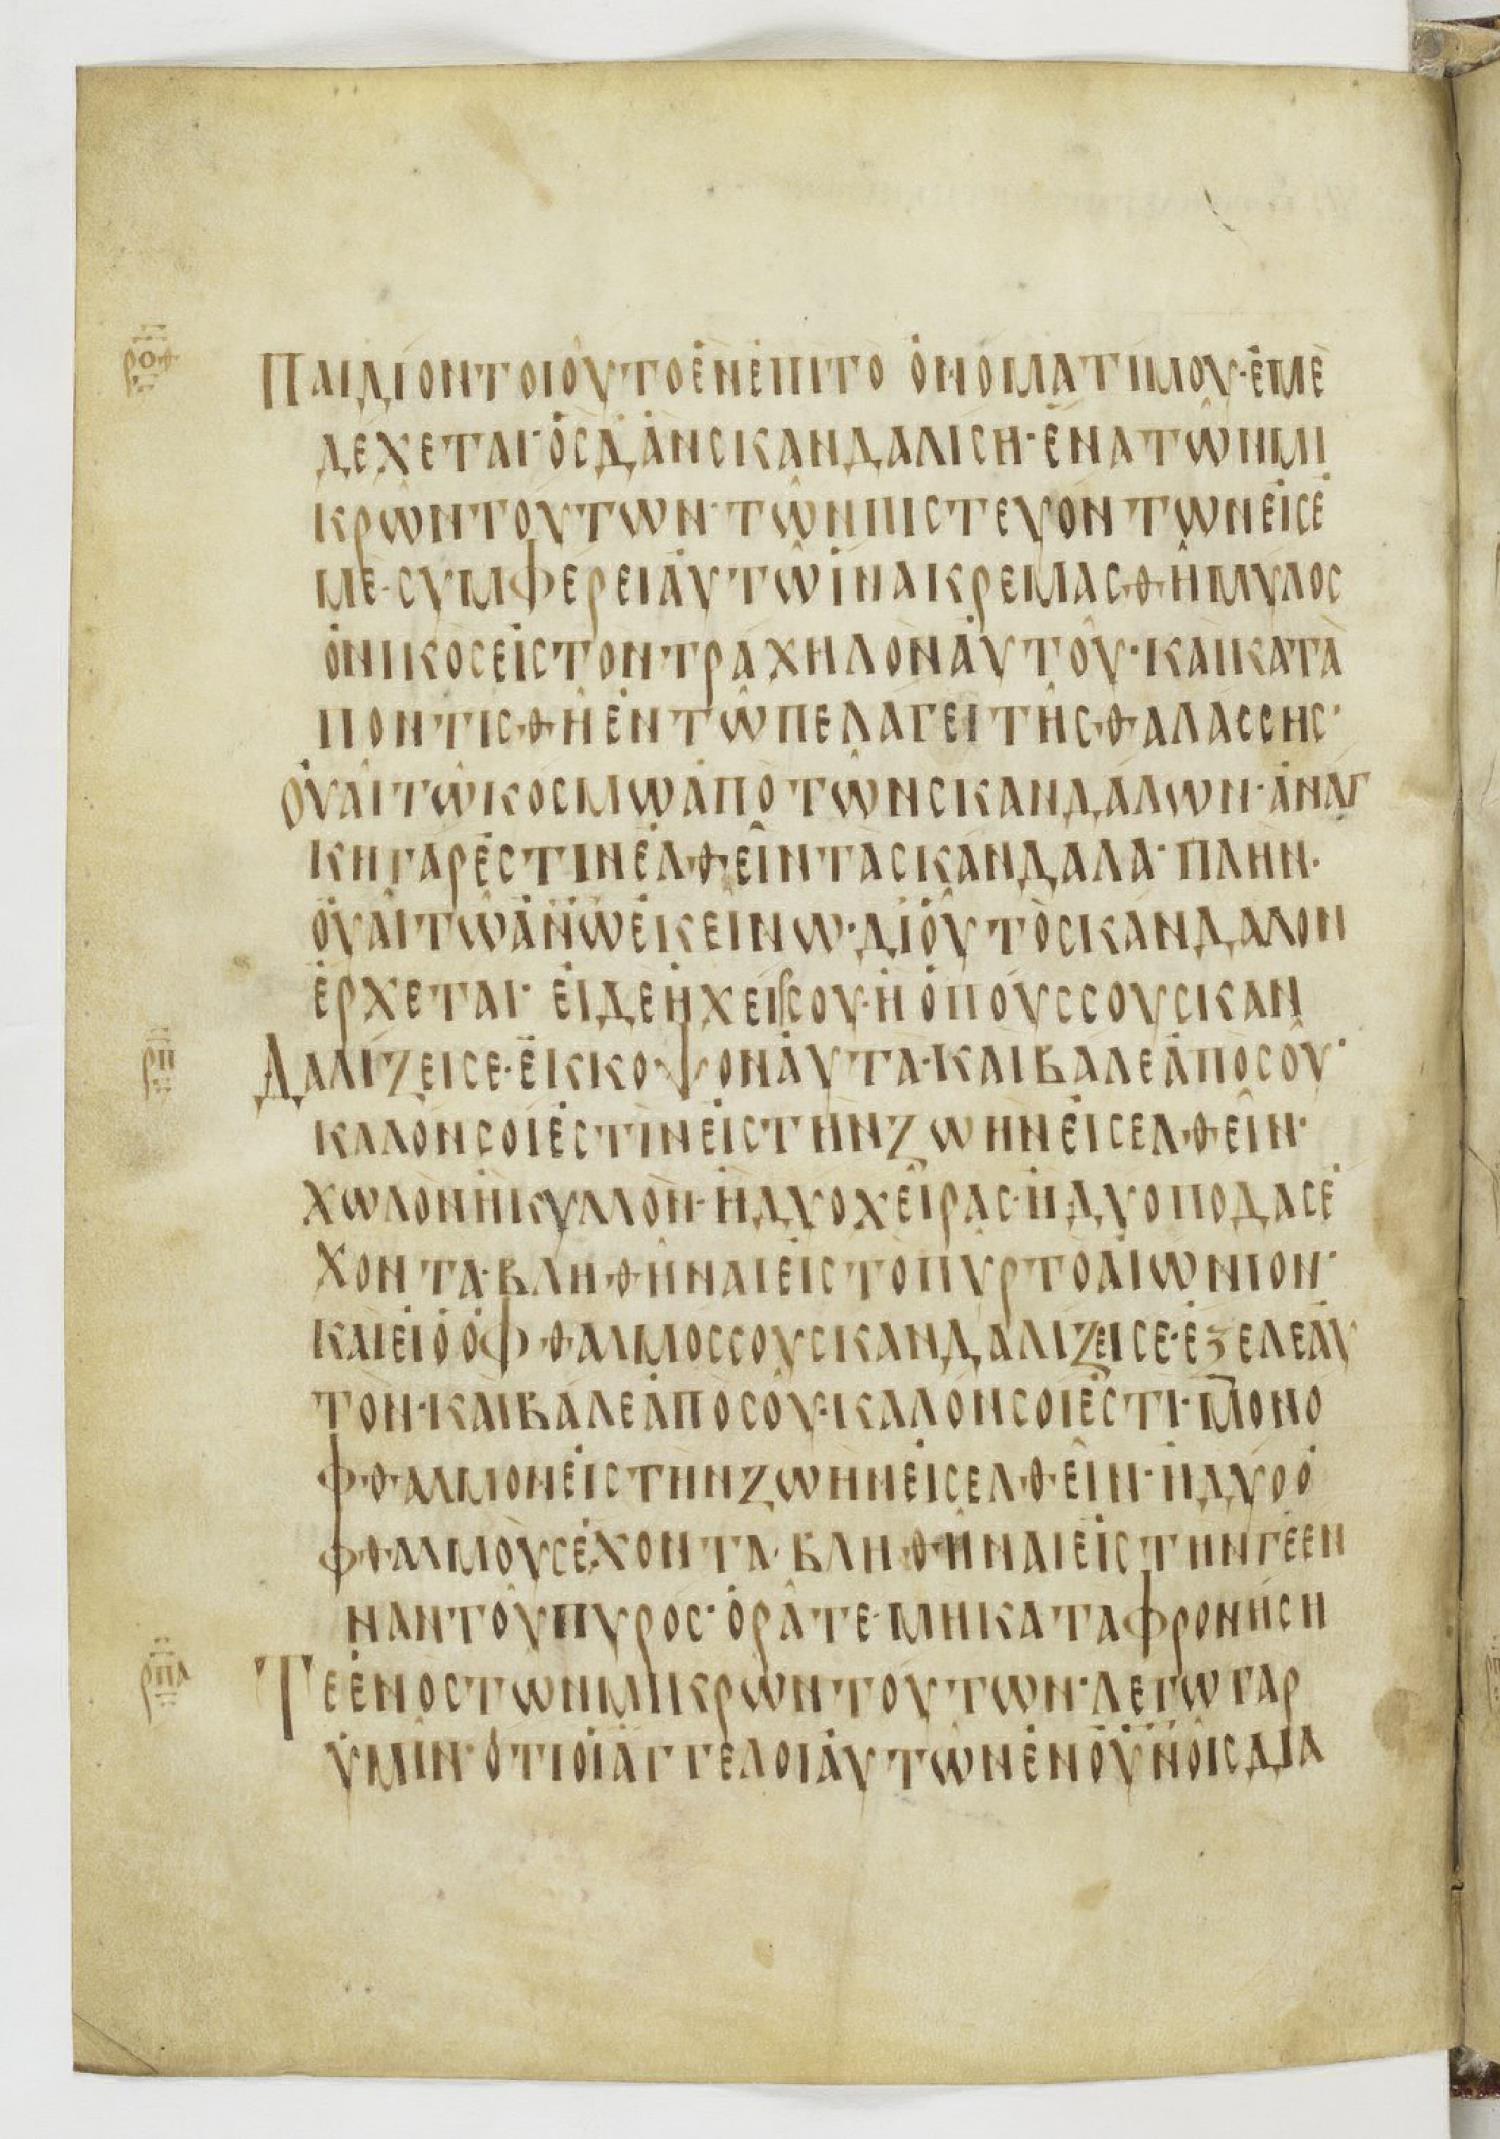 ροθ
ΠΑΙΔΙΟΝΤΟΙΟΥΤΟΕΝΕΠΙΤΟ ΟΝΟΜΑΤΙΜΟΥ·ΕΜΕ
ΔΕΧΕΤΑΙ·ΟΣΔΑΝΣΚΑΝΔΑΛΙΣΗ·ΕΝΑΤΩΝΜΙ
ΚΡΩΝΤΟΥΤΩΝ·ΤΩΝΠΙΣΤΕΥΟΝΤΩΝΕΙΣΕ
ΜΕ·ΣΥΜΦΕΡΕΙΑΥΤΩΙΝΑΚΡΕΜΑΣΘΗΜΥΛΟΣ
ΟΝΙΚΟΣΕΙΣΤΟΝΤΡΑΧΗΛΟΝΑΥΤΟΥ·ΚΑΙΚΑΤΑ
ΠΟΝΤΙΣΘΗΕΝΤΩΠΕΛΑΓΕΙΤΗΣΘΑΛΑΣΣΗΣ·
ΟΥΑΙΤΩΚΟΣΜΩΑΠΟΤΩΝΣΚΑΝΔΑΛΩΝ·ΑΝΑΓ
ΚΗΓΑΡΕΣΤΙΝΕΛΘΕΙΝΤΑΣΚΑΝΔΑΛΑ·ΠΛΗΝ·
ΟΥΑΙΤΩΑΝΩΕΚΕΙΝΩ·ΔΙΟΥΤΟΣΚΑΝΔΑΛΟΝ
ΕΡΧΕΤΑΙ· ΕΙΔΕΗΧΕΙΡΣΟΥ·ΗΟΠΟΥΣΣΟΥΣΚΑΝ
ρπ
ΔΑΛΙΖΕΙΣΕ·ΕΚΚΟΨΟΝΑΥΤΑ·ΚΑΙΒΑΛΕΑΠΟΣΟΥ·
ΚΑΛΟΝΣΟΙΕΣΤΙΝΕΙΣΤΗΝΖΩΗΝΕΙΣΕΛΘΕΙΝ·
ΧΩΛΟΝΗΚΥΛΛΟΝ·ΗΔΥΟΧΕΙΡΑΣ·ΗΔΥΟΠΟΔΑΣΕ
ΧΟΝΤΑ·ΒΛΗΘΗΝΑΙΕΙΣΤΟΠΥΡΤΟΑΙΩΝΙΟΝ·
ΚΑΙΕΙΟΟΦΘΑΛΜΟΣΣΟΥΣΚΑΝΔΑΛΙΖΕΙΣΕ·ΕΞΕΛΕΑΥ
ΤΟΝ·ΚΑΙΒΑΛΕΑΠΟΣΟΥ·ΚΑΛΟΝΣΟΙΕΣΤΙ·ΜΟΝΟ
ΦΘΑΛΜΟΝΕΙΣΤΗΝΖΩΗΝΕΙΣΕΛΘΕΙΝ·ΗΔΥΟΟ
ΦΘΑΛΜΟΥΣΕΧΟΝΤΑ·ΒΛΗΘΗΝΑΙΕΙΣΤΗΝΓΕΕΝ
ΝΑΝΤΟΥΠΥΡΟΣ·ΟΡΑΤΕ·ΜΗΚΑΤΑΦΡΟΝΗΣΗ
ρπα
ΤΕΕΝΟΣΤΩΝΜΙΚΡΩΝΤΟΥΤΩΝ·ΛΕΓΩΓΑΡ
ΥΜΙΝ·ΟΤΙΟΙΑΓΓΕΛΟΙΑΥΤΩΝΕΝΟΥΝΟΙΣΔΙΑ